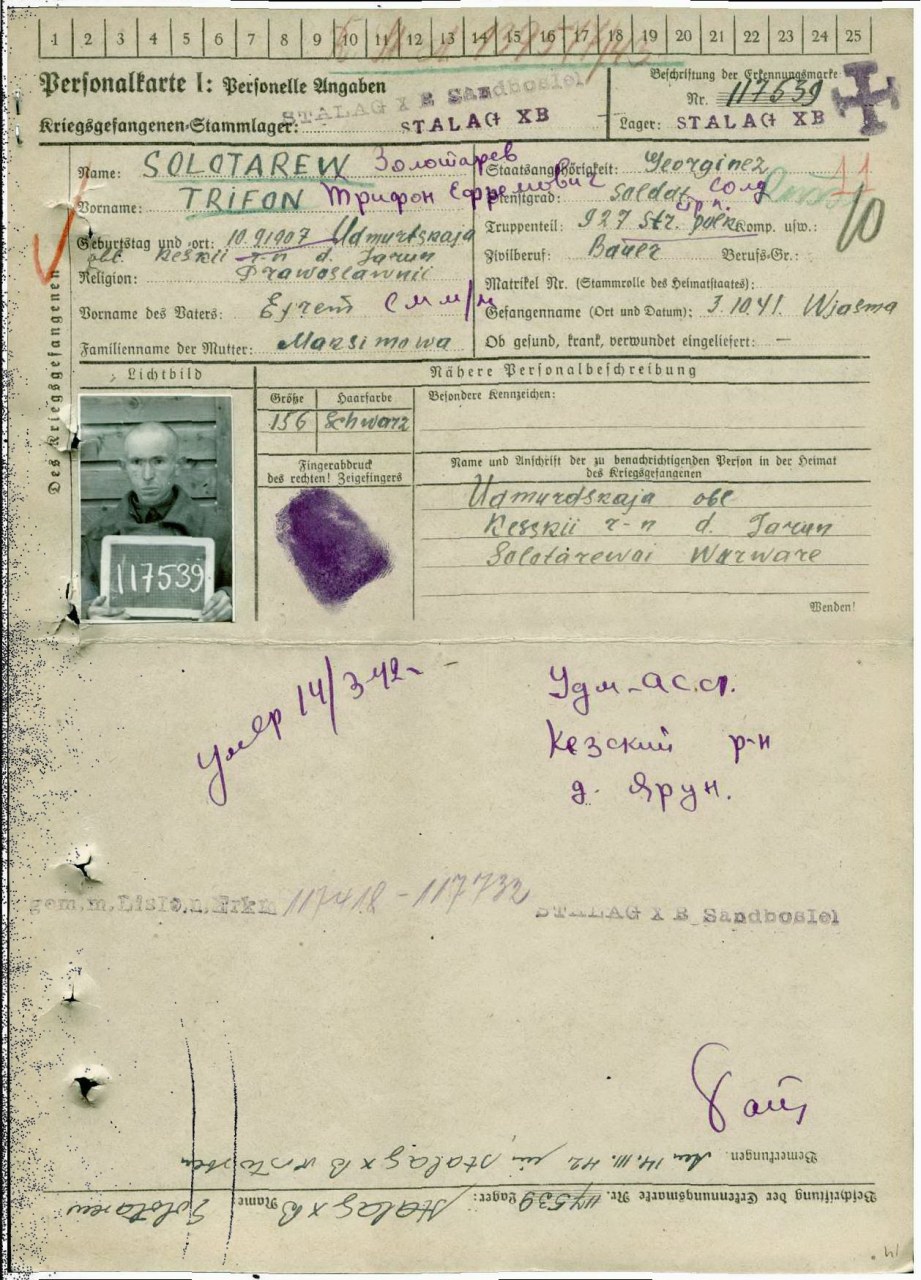 1 2 3 4 5 6 7 8 9 10 11 12 13 14 15 16 17 18 19 20 21 22 23 24 25
Personalkarte I: Personelle Angaben
STALAG X B Sandbostel
Kriegsgefangenen-Stammlager: STALAG XB
Beschriftung der Erkennungsmarke
Nr. 117539
Lager: STALAG XB
Des Kriegsgefangenen
Name: SOLOTAREW Золотарев
Vorname: TRIFON Трифон Ефремович
Geburtstag und -ort: 10.9.1907 Udmurtskaja
obl. Keskii r-n d. Jarun
Religion: Prawoslawnii
Vorname des Vaters: Efrem
Familienname der Mutter: Maksimowa
Staatsangehörigkeit: Georginez
Dienstgrad: Soldat солд
Truppenteil: 927 Str. polk Komp. usw.:
Zivilberuf: Bauer Berufs-Gr.:
Matrikel Nr. (Stammrolle des Heimatstaates):
Gefangennahme (Ort und Datum): 3.10.41. Wjasma
Ob gesund, krank, verwundet eingeliefert: —
10
Lichtbild
Nähere Personalbeschreibung
Größe Haarfarbe
156 Schwarz
Besondere Kennzeichen:
Fingerabdruck
des rechten! Zeigefingers
117539
Name und Anschrift der zu benachrichtigenden Person in der Heimat
des Kriegsgefangenen
Udmurdskaja obl
Kesskii r-n d. Jarun
Solotarewoi Warware
Wenden!
умер 14/3 42-
Удм-АССР.
Кезский р-н
д. Ярун.
gem.m.Liste.n.Erkm 117418 - 117732
STALAG X B Sandbostel
Bemerkungen: Am 14.III.42 im Stalag XB verstorben
Beschriftung der Erkennungsmarke Nr. 117539 Lager: Stalag XB Name: Solotarew